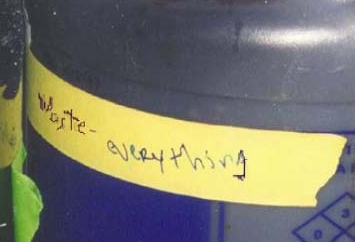 Waste - everything
0 3